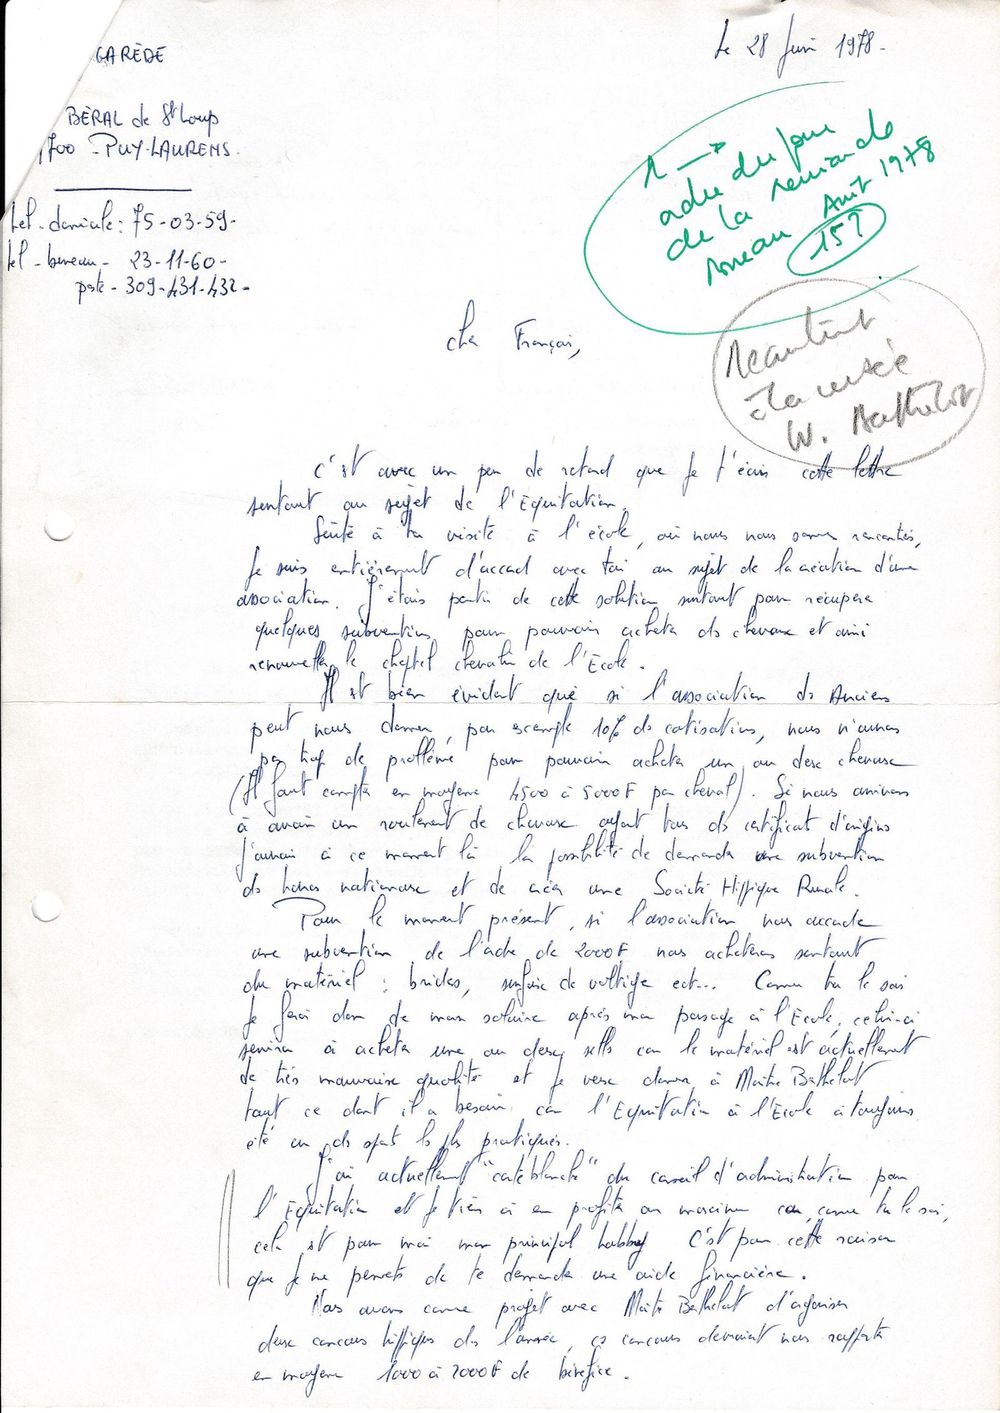 GARÈDE
Le 28 Juin 1978.
BÉRAL de St Loup
700 - PUY-LAURENS.
tel - domicile : 75-03-59-
tel - bureau - 23-11-60-
poste - 309-431-432-
1 →
ordre du jour
de la réunion de
bureau Août 1978
15?
Maintint
à la
W. Barthelot
Cher François,
C'est avec un peu de retard que je t'écris cette lettre
surtout au sujet de l'Equitation.
Suite à ta visite à l'école, où nous nous sommes rencontrés,
je suis entièrement d'accord avec toi au sujet de la création d'une
association. J'étais parti de cette solution surtout pour récupérer
quelques subventions pour pouvoir acheter des chevaux et ainsi
renouveller le cheptel chevalin de l'Ecole.
Il est bien évident que si l'association des Anciens
peut nous donner, par exemple 10% des cotisations, nous n'aurons
pas trop de problème pour pouvoir acheter un ou deux chevaux
(Il faut compter en moyenne 4500 à 5000F par cheval). Si nous arrivons
à avoir un roulement de chevaux ayant tous des certificat d'origine
j'aurais à ce moment là la possibilité de demander une subvention
des haras nationaux et de créer une Société Hippique Rurale.
Pour le moment présent, si l'association nous accorde
une subvention de l'ordre de 2000F nous acheterons surtout
du matériel : brides, surfaix de voltige ect... Comme tu le sais
je ferai don de mon salaire après mon passage à l'Ecole, celui-ci
servira à acheter une ou deux selles car le matériel est actuellement
de très mauvaise qualité et je veux donner à Maître Barthelot
tout ce dont il a besoin car l'Equitation à l'Ecole a toujours
été un des sport les plus pratiqués.
J'ai actuellement "carte blanche" du conseil d'administration pour
l'Equitation et je tiens à en profiter au maximum car, comme tu le sais,
cela est pour moi mon principal hobby. C'est pour cette raison
que je me permets de te demander une aide financière.
Nous avons comme projet avec Maître Barthelot d'organiser
deux concours hippiques dans l'année, ces concours devraient nous rapporter
en moyenne 1000 à 2000F de bénéfice.